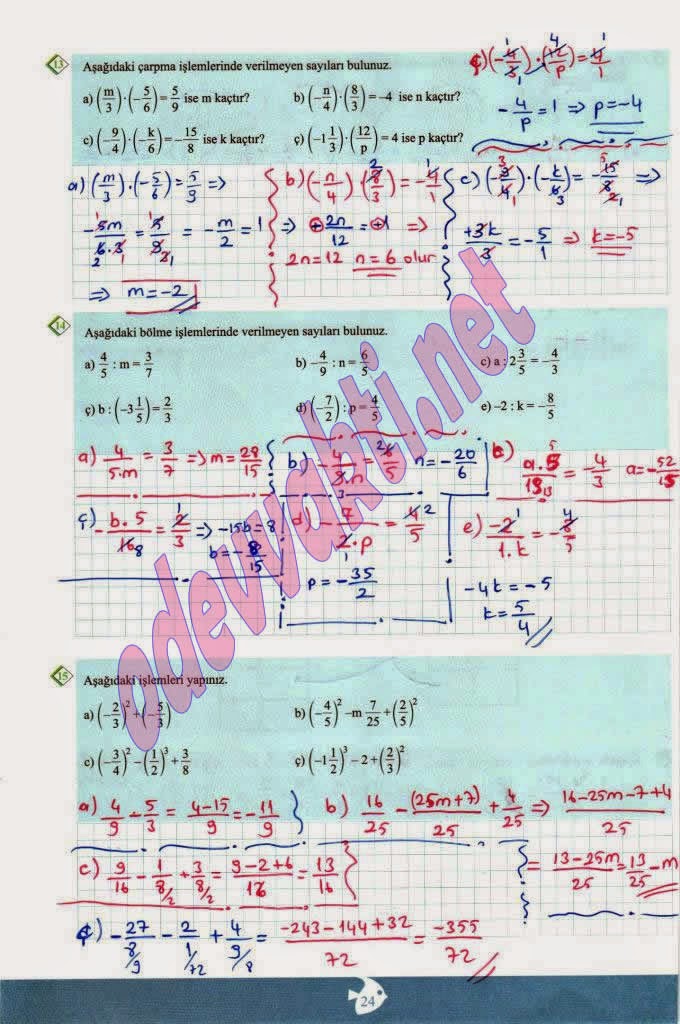 13
Aşağıdaki çarpma işlemlerinde verilmeyen sayıları bulunuz.
a) (m/3)·(-5/6)=5/9 ise m kaçtır?
b) (-n/4)·(8/3)=-4 ise n kaçtır?
c) (-9/4)·(-k/6)=-15/8 ise k kaçtır?
ç) (-1 1/3)·(12/p)=4 ise p kaçtır?
ç) (-4/3)·(12/p)=4/1
-4/p=1 ⇒ p=-4
a) (m/3)·(-5/6)=5/9 ⇒
-5m/6·3=5/9=-m/2=1
⇒ m=-2
b) (-n/4)(8/3)=-4/1
⇒ +2n/12=+1 ⇒
2n=12 n=6 olur
c) (-9/4)·(-k/6)=-15/8 ⇒
+3k/3=-5/1 ⇒ k=-5
14
Aşağıdaki bölme işlemlerinde verilmeyen sayıları bulunuz.
a) 4/5 : m = 3/7
b) -4/9 : n = 6/5
c) a : 2 3/5 = -4/3
ç) b : (-3 1/5) = 2/3
d) (-7/2) : p = 4/5
e) -2 : k = -8/5
a) 4/5·m = 3/7 ⇒ m = 28/15
b) -4/9·n = 6/5 n=-20/6
a·5/13 = -4/3 a=-52/15
ç) -b·5/16 = 2/3 ⇒ -15b=8
b=-8/15
d) -7/2·p = 4/5
p=-35/2
e) -2/1·k = -8/5
-4k=-5
k=5/4
15
Aşağıdaki işlemleri yapınız.
a) (-2/3)²+(-5/3)
b) (-4/5)² -m 7/25 +(2/5)²
c) (-3/4)² -(1/2)³+3/8
ç) (-1 1/2)³ -2+(2/3)²
a) 4/9 - 5/3 = 4-15/9 = -11/9
b) 16/25 - (25m+7)/25 + 4/25 ⇒ 16-25m-7+4/25
= 13-25m/25 = 13/25 - m
c) 9/16 - 1/8 + 3/8 = 9-2+6/16 = 13/16
ç) -27/8 - 2/1 + 4/9 = -243-144+32/72 = -355/72
odevvakti.net
24